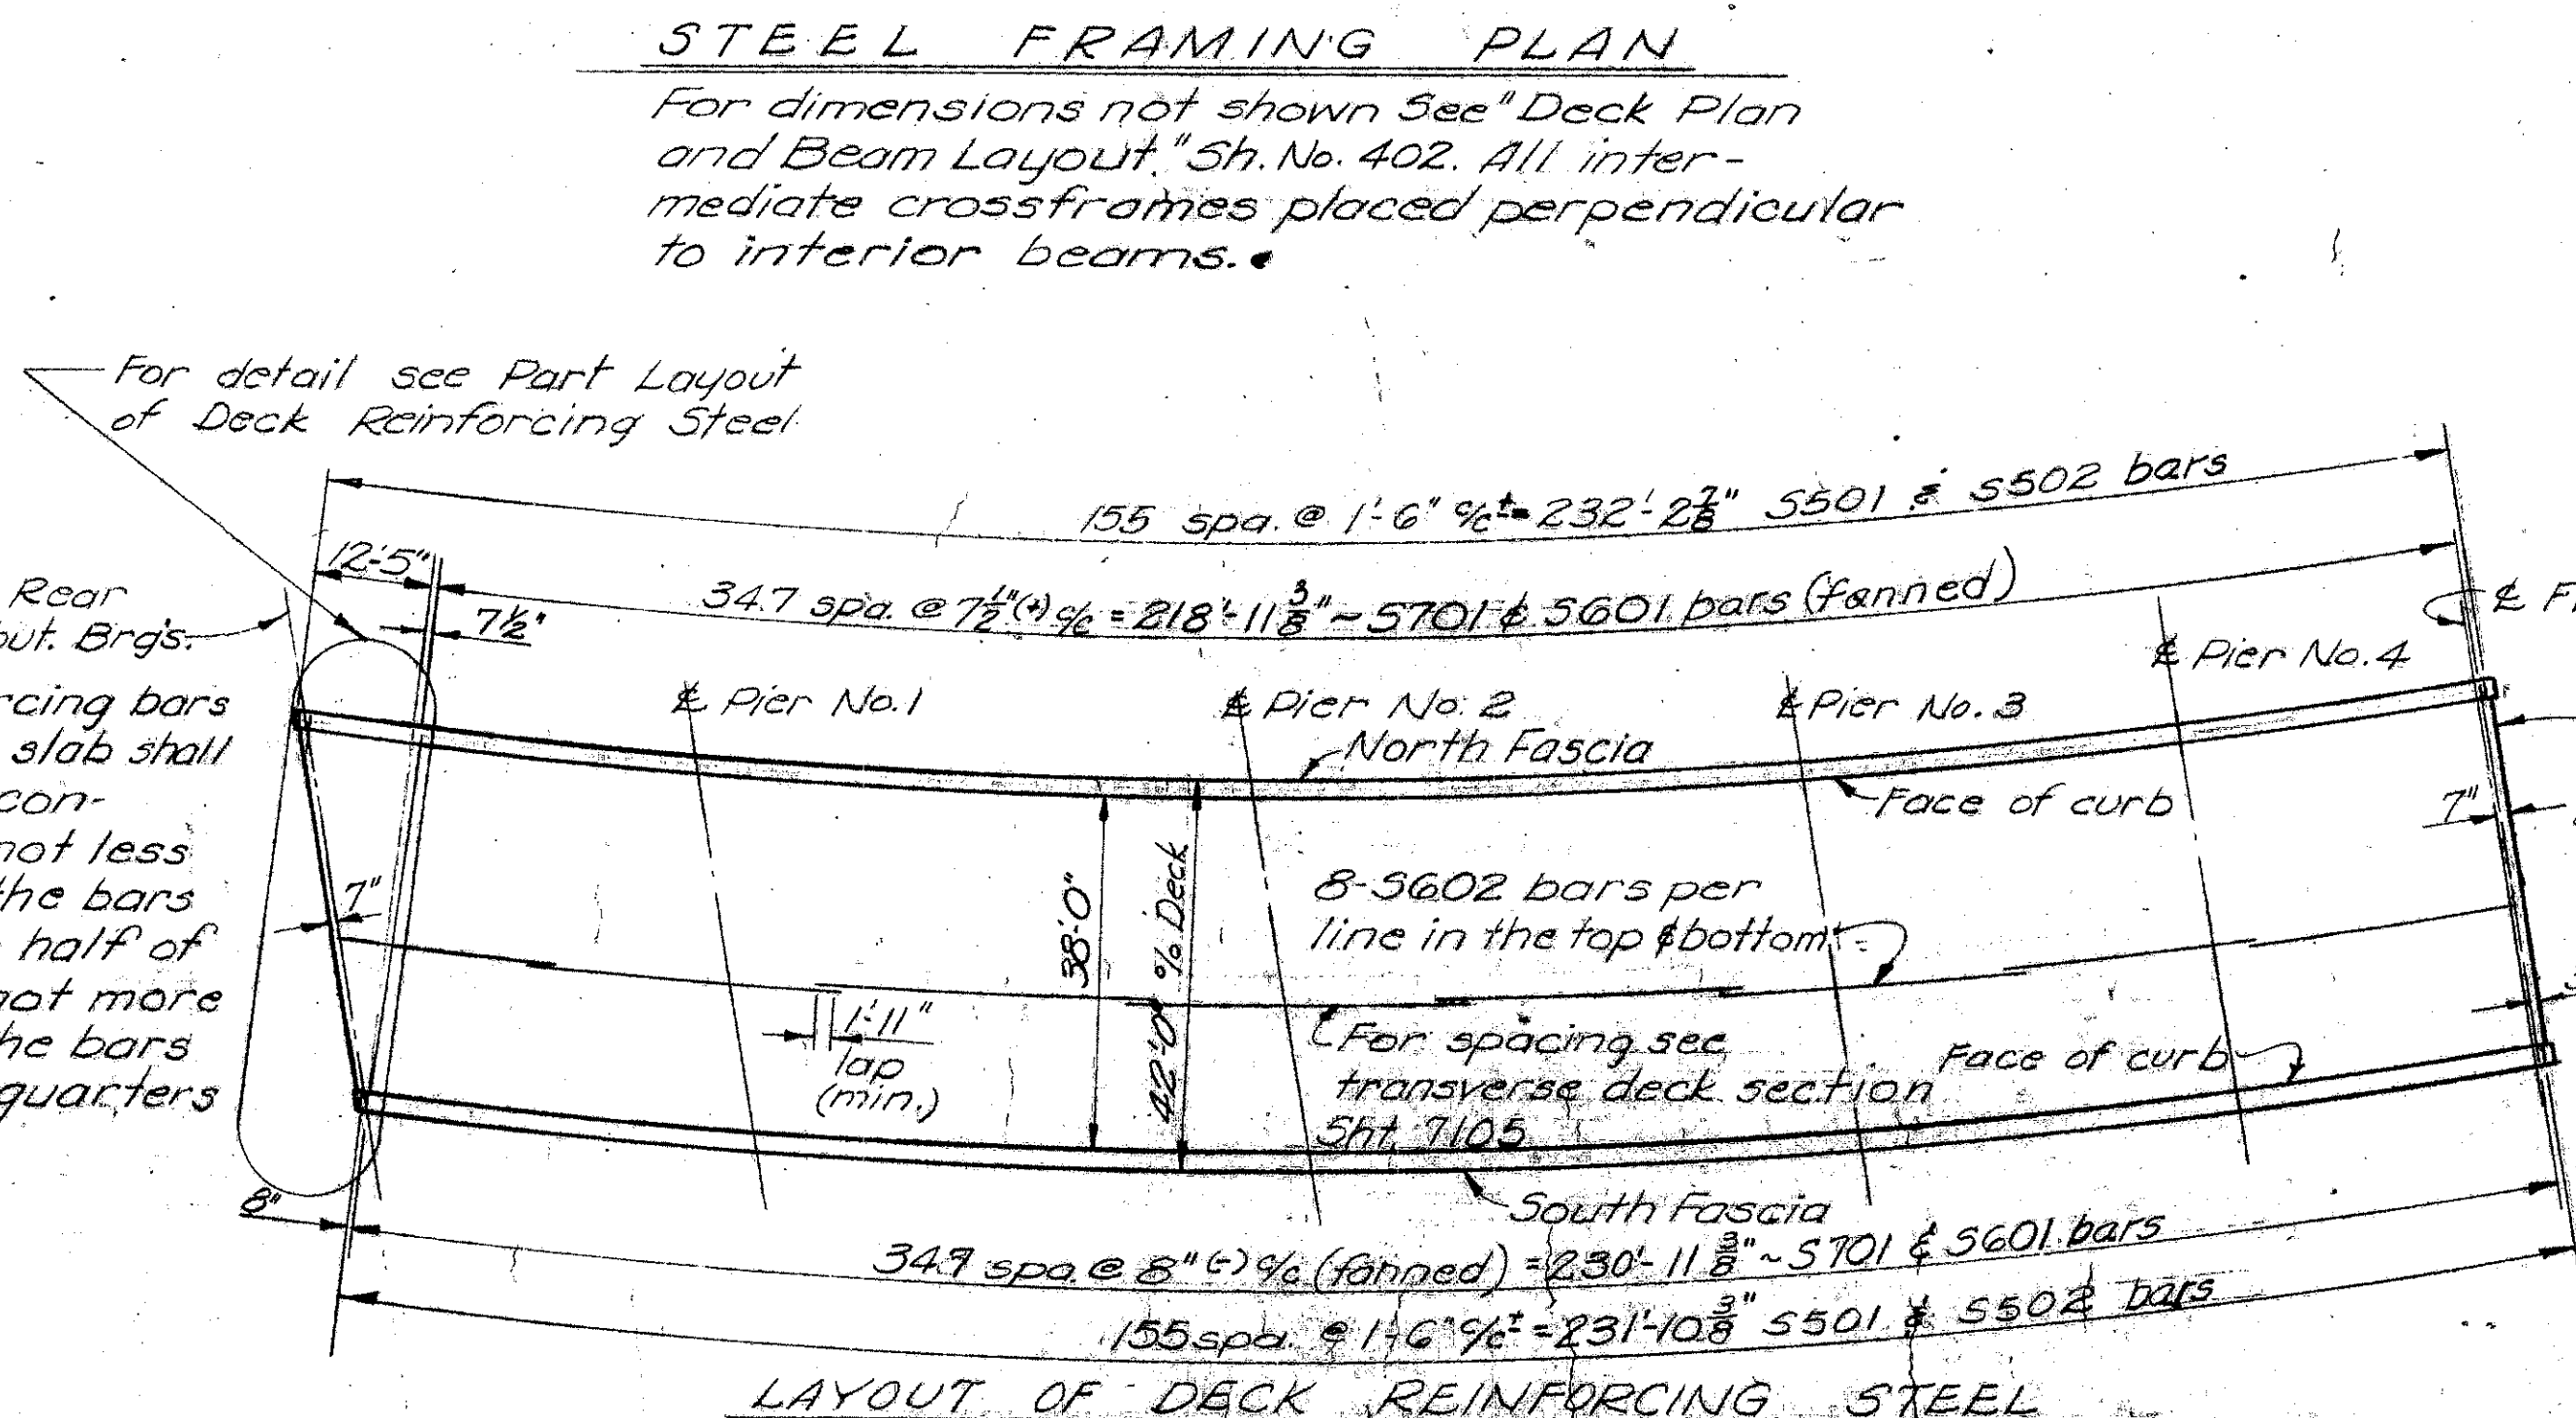 STEEL FRAMING PLAN
For dimensions not shown See "Deck Plan
and Beam Layout," Sh. No. 402. All inter-
mediate crossframes placed perpendicular
to interior beams.
For detail see Part Layout
of Deck Reinforcing Steel
155 spa. @ 1'-6" c/c± = 232'-2 7/8" S501 & S502 bars
12'-5"
347 spa. @ 7 1/2"(+) c/c = 218'-11 3/8" ~ S701 & S601 bars (fanned)
7 1/2"
Rear
out. Brgs.
℄ Pier No. 1
℄ Pier No. 2
℄ Pier No. 3
℄ Pier No. 4
rcing bars
slab shall
con-
not less
the bars
half of
not more
he bars
quarters
North Fascia
Face of curb
7"
7"
38'-0"
42'-0" o/o Deck
8-S602 bars per
line in the top & bottom
1'-11"
lap
(min.)
For spacing see
transverse deck section
Sht. 7105
Face of curb
8"
South Fascia
349 spa. @ 8"(-) c/c (fanned) = 230'-11 3/8" ~ S701 & S601 bars
155 spa. @ 1'-6" c/c± = 231'-10 3/8" S501 & S502 bars
LAYOUT OF DECK REINFORCING STEEL